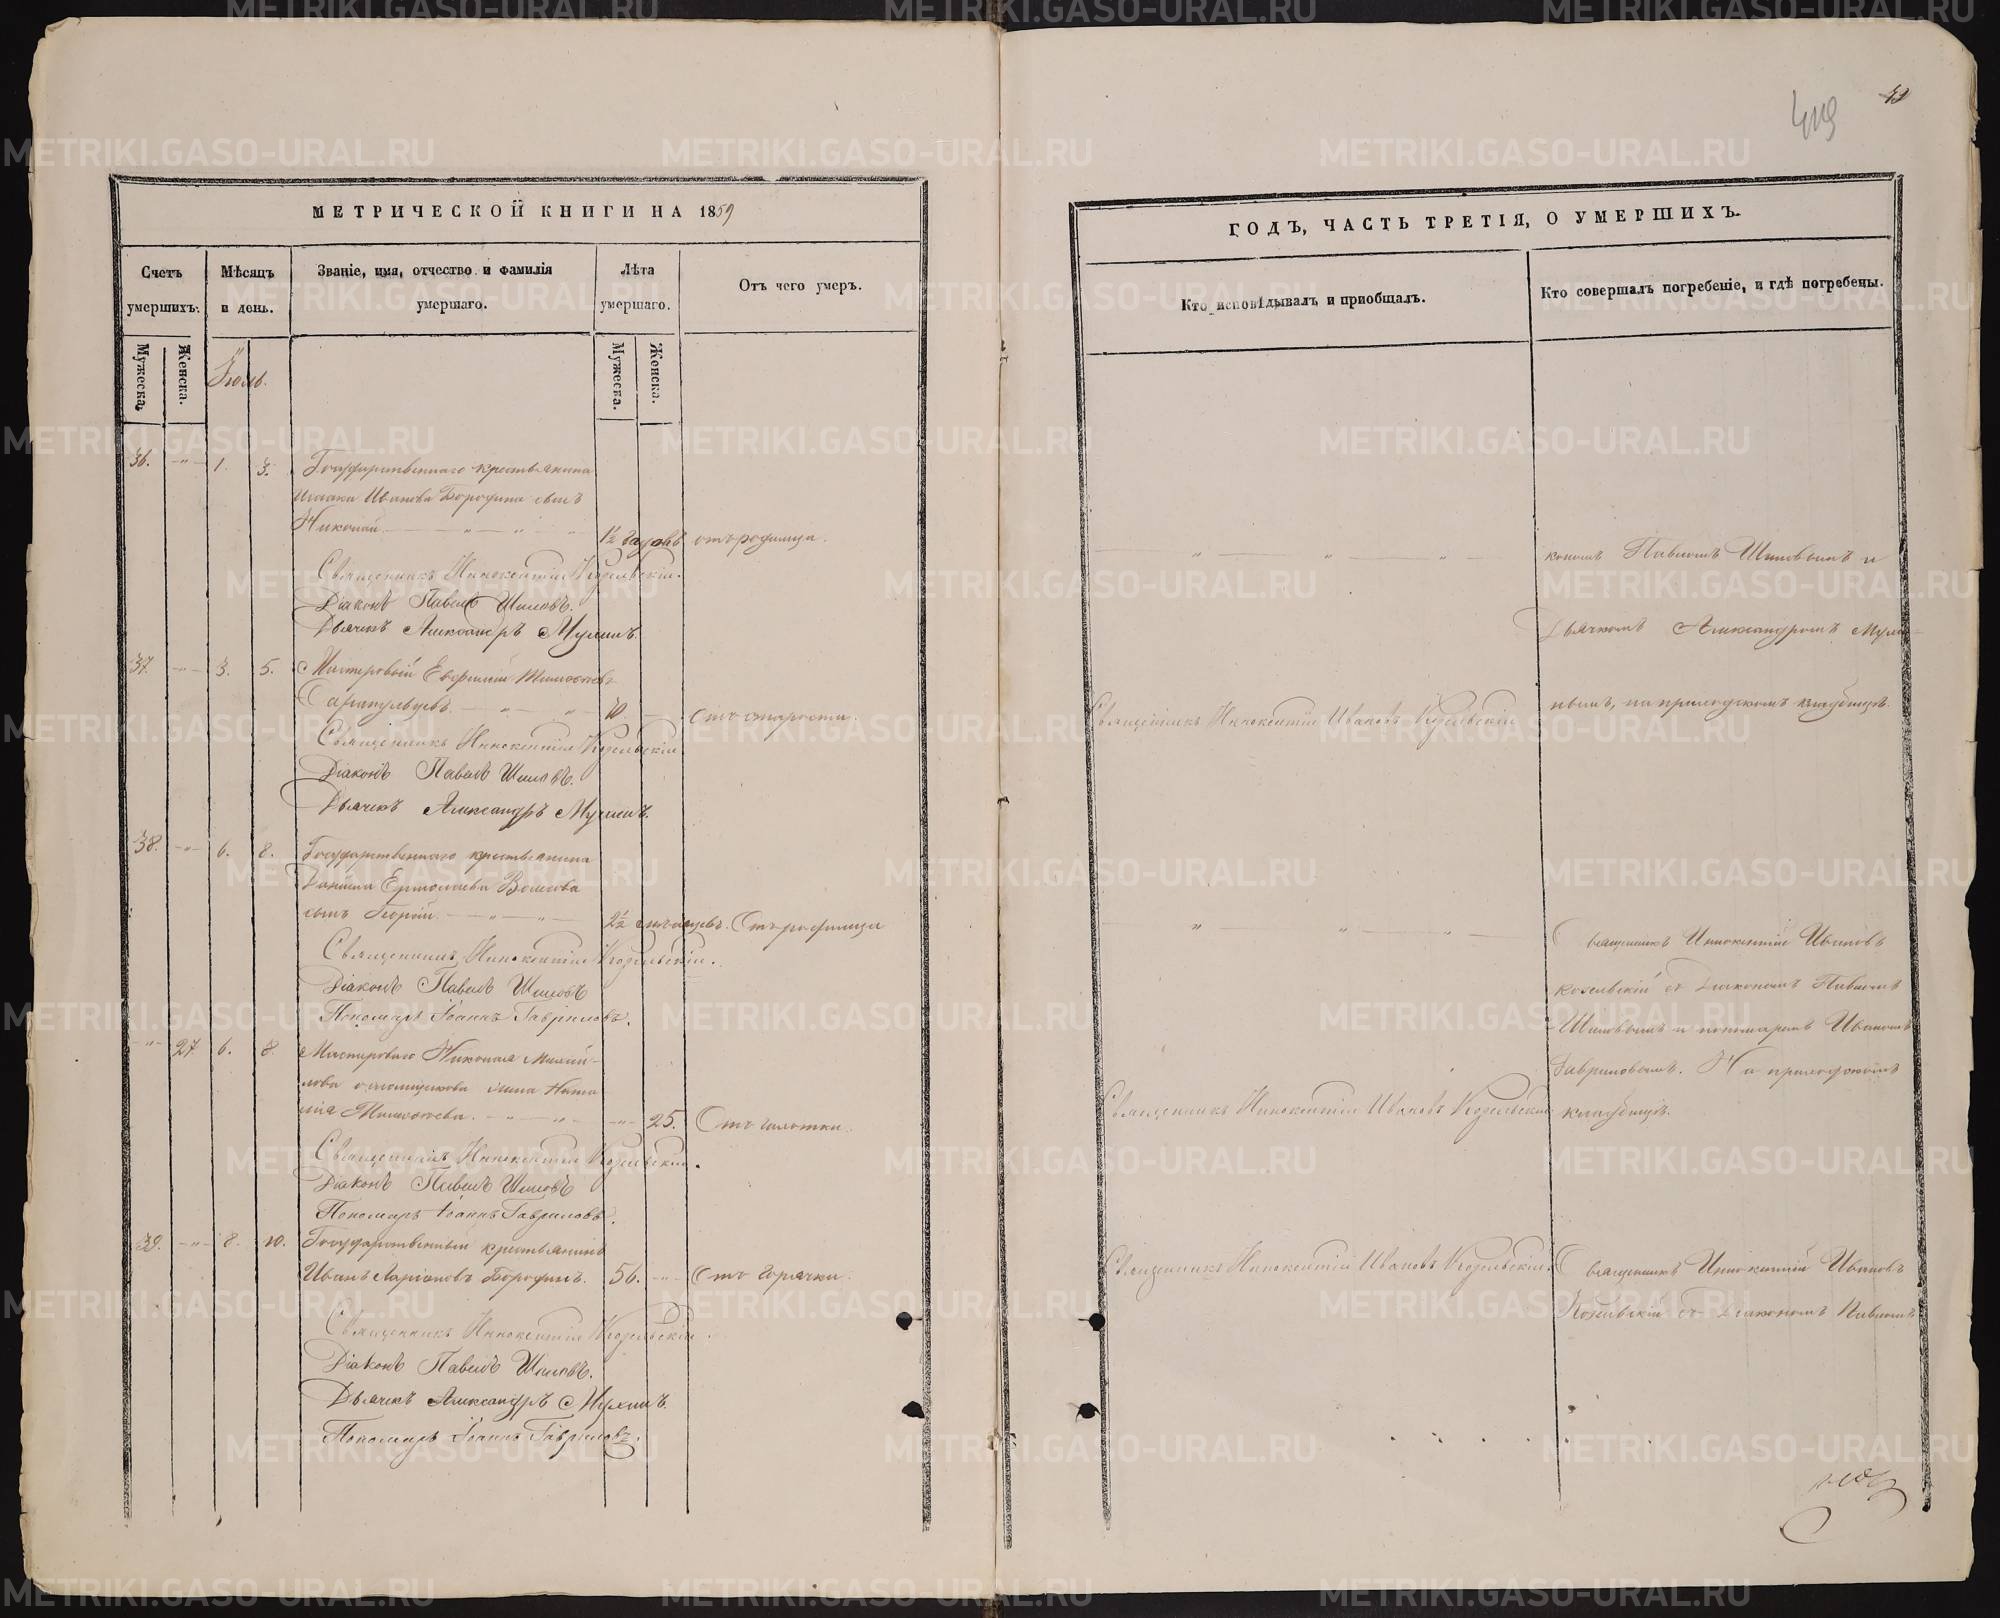 419
МЕТРИЧЕСКОЙ КНИГИ НА 1859
Счетъ умершихъ.
Мѣсяцъ и день.
Званіе, имя, отчество и фамилія умершаго.
Лѣта умершаго.
Отъ чего умеръ.
Мужеска.
Женска.
Мужеска.
Женска.
Іюль.
36. " 1. 3. Государственнаго крестьянина
Исаака Иванова Бородина сынъ
Николай 1½ годовъ отъ родимца.
Священникъ Иннокентій Козельскій.
Діаконъ Павелъ Шиловъ.
Дьячекъ Александръ Мухинъ.
37. " 3. 5. Мастеровый Евфимій Тимофеевъ
Сарапульцевъ. 70 Отъ старости.
Священникъ Иннокентій Козельскій.
Діаконъ Павелъ Шиловъ.
Дьячекъ Александръ Мухинъ.
38. " 6. 8. Государственнаго крестьянина
Данила Ермолаева Волкова
сынъ Георгій 2½ мѣсяцевъ. Отъ родимца
Священникъ Иннокентій Козельскій.
Діаконъ Павелъ Шиловъ
Пономарь Іоаннъ Гавриловъ.
" 27. 6. 8. Мастероваго Николая Михай-
лова жена Ната-
лія Тимофеева. " 25. Отъ чахотки.
Священникъ Иннокентій Козельскій.
Діаконъ Павелъ Шиловъ
Пономарь Іоаннъ Гавриловъ.
39. " 8. 10. Государственный крестьянинъ
Иванъ Ларіоновъ Бородинъ. 56. " Отъ горячки.
Священникъ Иннокентій Козельскій.
Діаконъ Павелъ Шиловъ.
Дьячекъ Александръ Мухинъ.
Пономарь Іоаннъ Гавриловъ.
ГОДЪ, ЧАСТЬ ТРЕТІЯ, О УМЕРШИХЪ.
Кто исповѣдывалъ и пріобщалъ.
Кто совершалъ погребеніе, и гдѣ погребены.
кономъ Павломъ Шиловымъ и
Дьячкомъ Александромъ Мухи-
нымъ, на приходскомъ кладбищѣ.
Священникъ Иннокентій Ивановъ Козельскій
Священникъ Иннокентій Ивановъ
Козельскій съ Діакономъ Павломъ
Шиловымъ и пономаремъ Иваномъ
Гавриловымъ. На приходскомъ
кладбищѣ.
Священникъ Иннокентій Ивановъ Козельскій
Священникъ Иннокентій Ивановъ Козельскій.
Священникъ Иннокентій Ивановъ
Козельскій съ Діакономъ Павломъ
METRIKI.GASO-URAL.RU